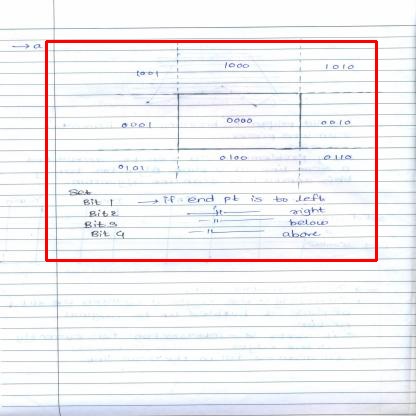 → a
1001 1000 1010
0001 0000 0010
0101 0100 0110
Set
Bit 1 → if end pt is to left
Bit 2 —"— right
Bit 3 —"— below
Bit 4 —"— above